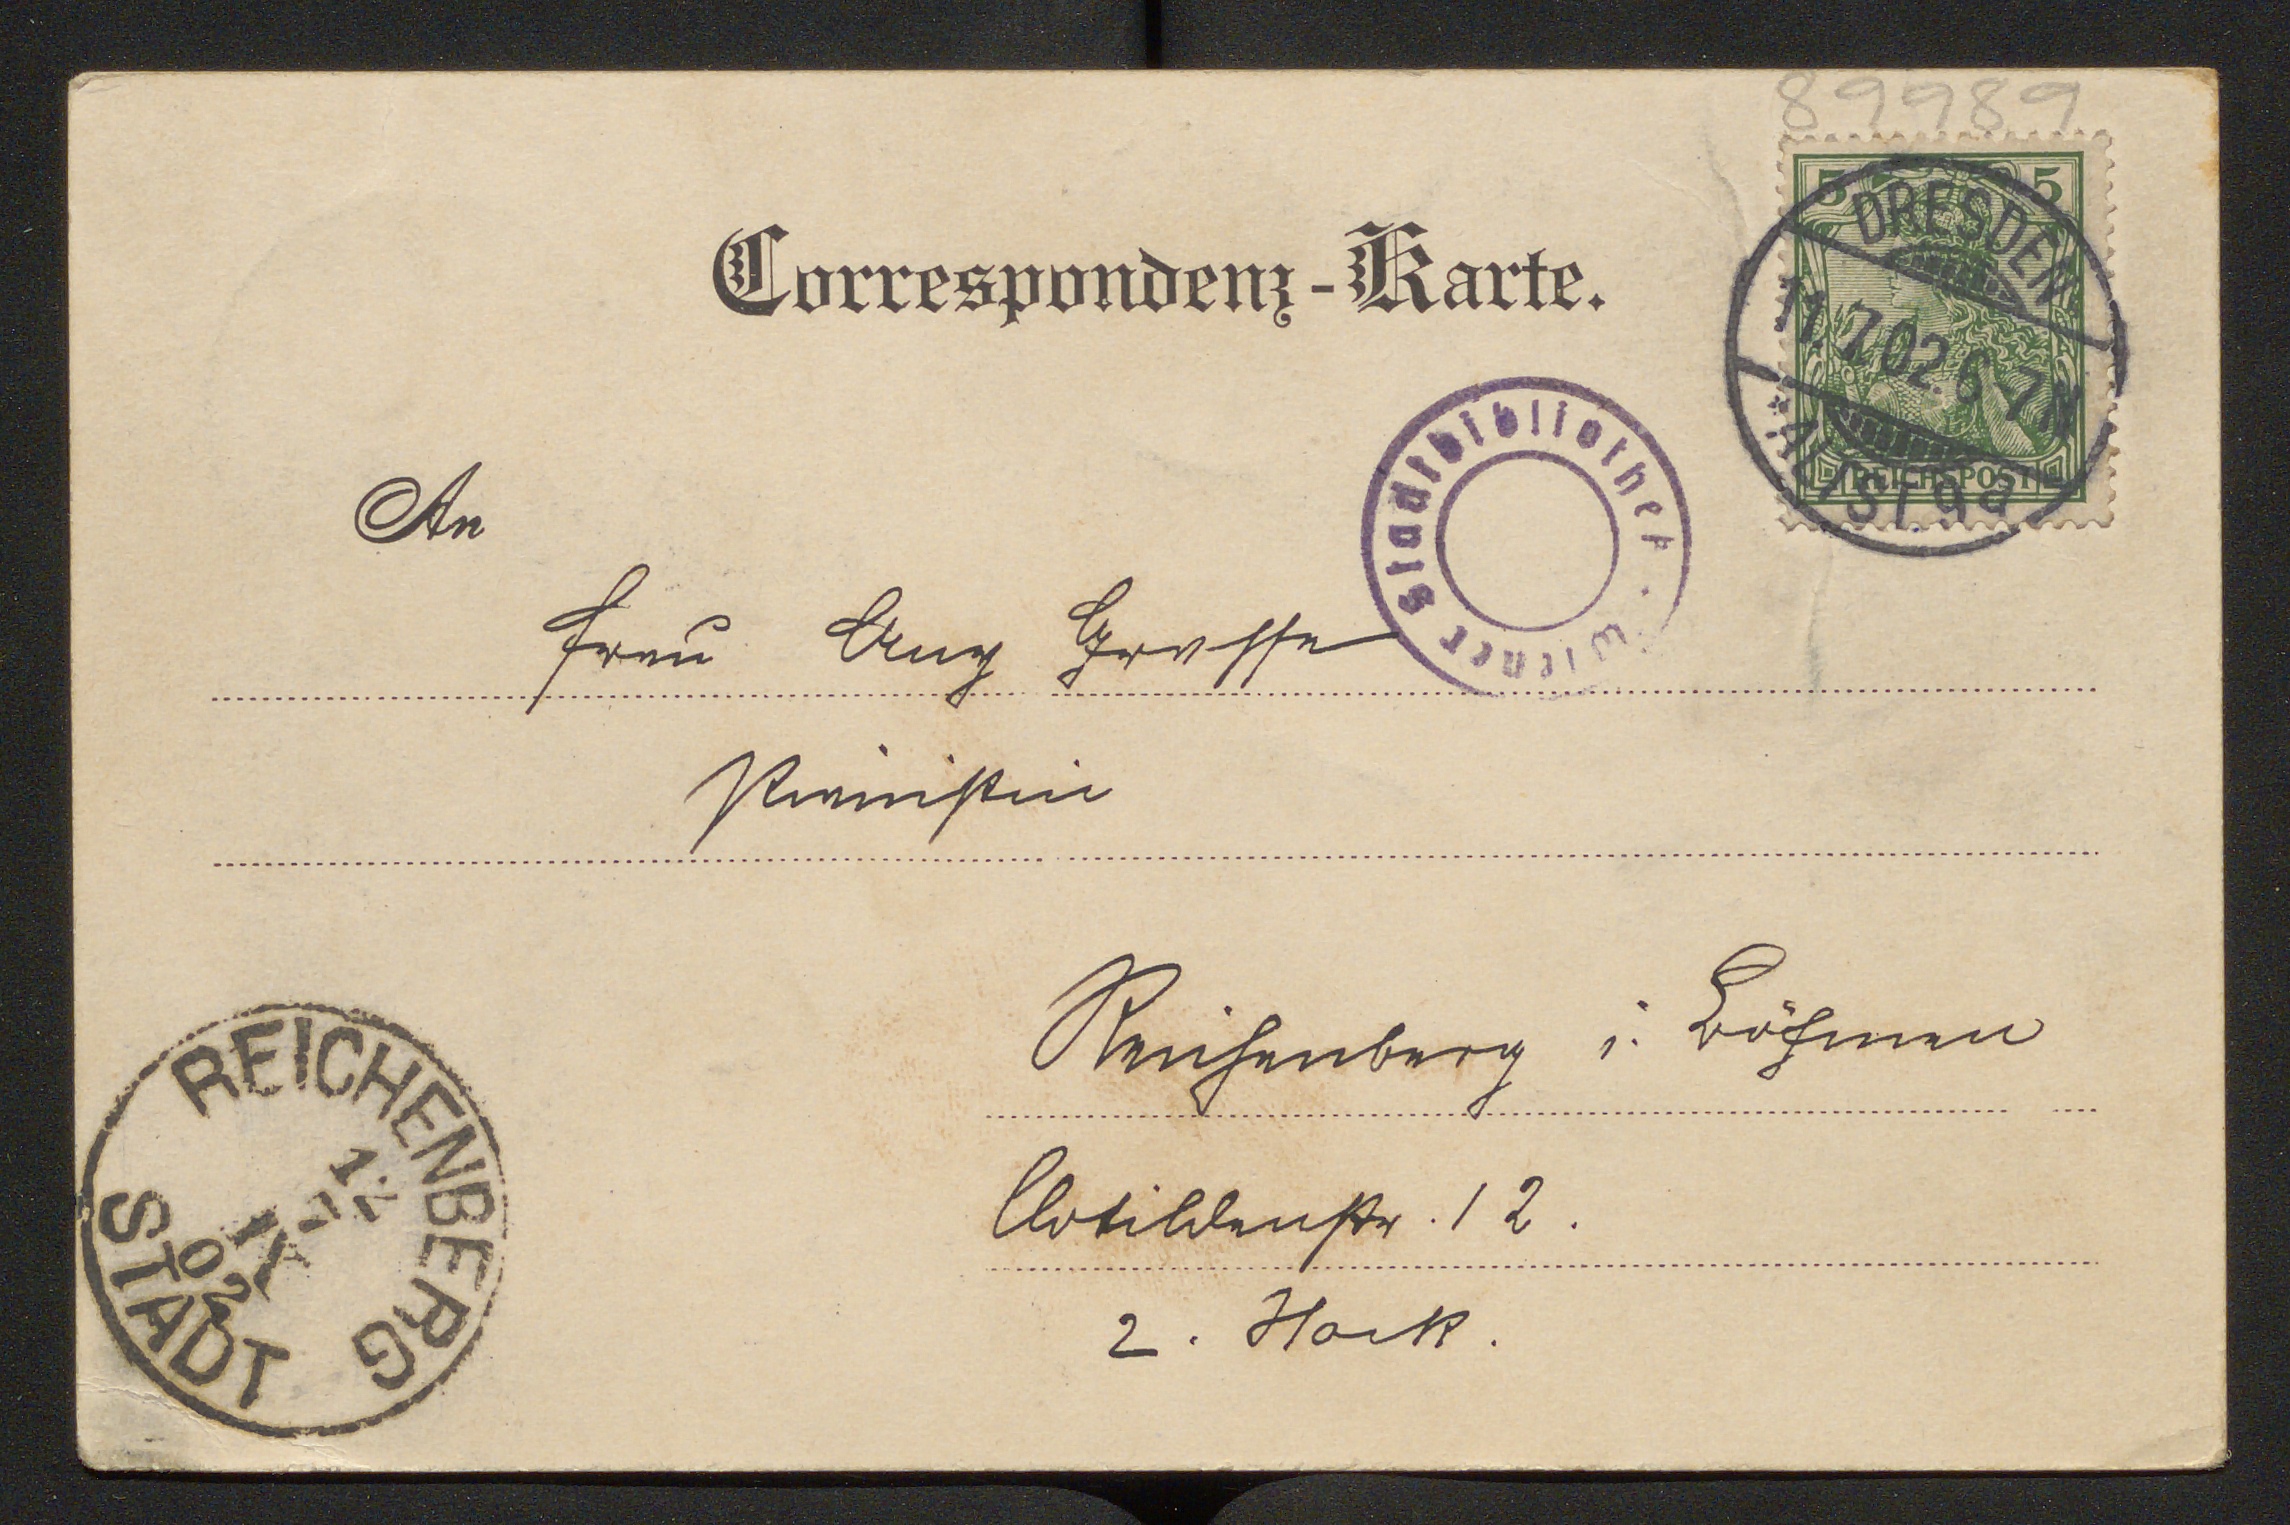 89989
Correspondenz-Karte.
5 5
REICHSPOST
DRESDEN
11.7.02. 6-7N
*ALTST. 9a
Wiener Stadtbibliothek.
An
Frau Aug Grosse
Reichenberg i. Böhmen
Clotildenstr. 12.
2. Stock.
REICHENBERG
12
02
STADT